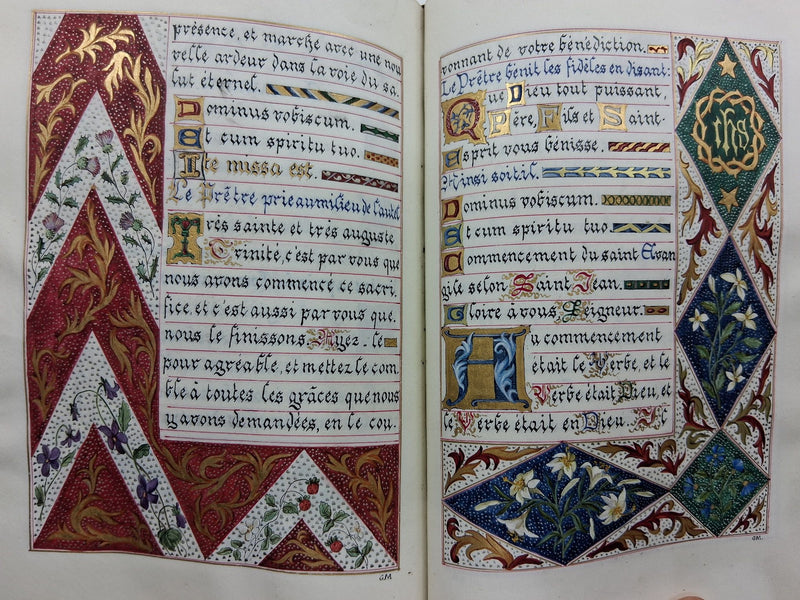 présence, et marche avec une nou
velle ardeur dans la voie du sa.
lut éternel.
Dominus vobiscum.
Et cum spiritu tuo.
Ite missa est.
Le Prêtre prie au milieu de l'autel
Très sainte et très auguste
Trinité, c'est par vous que
nous avons commencé ce sacri.
fice, et c'est aussi par vous que,
nous le finissons. Ayez. le
pour agréable, et mettez le com
ble à toutes les grâces que nous
y avons demandées, en le cou.
GM
ronnant de votre bénédiction.
Le Prêtre bénit les fidèles en disant:
Que Dieu tout puissant,
Père, Fils et Saint-
Esprit vous bénisse.
Ainsi soit il.
Dominus vobiscum.
Et cum spiritu tuo.
Commencement du saint Evan
gile selon Saint Jean.
Gloire à vous Seigneur.
Au commencement
était le Verbe, et le
Verbe était Dieu, et
le Verbe était en Dieu. Il
ihs
GM.